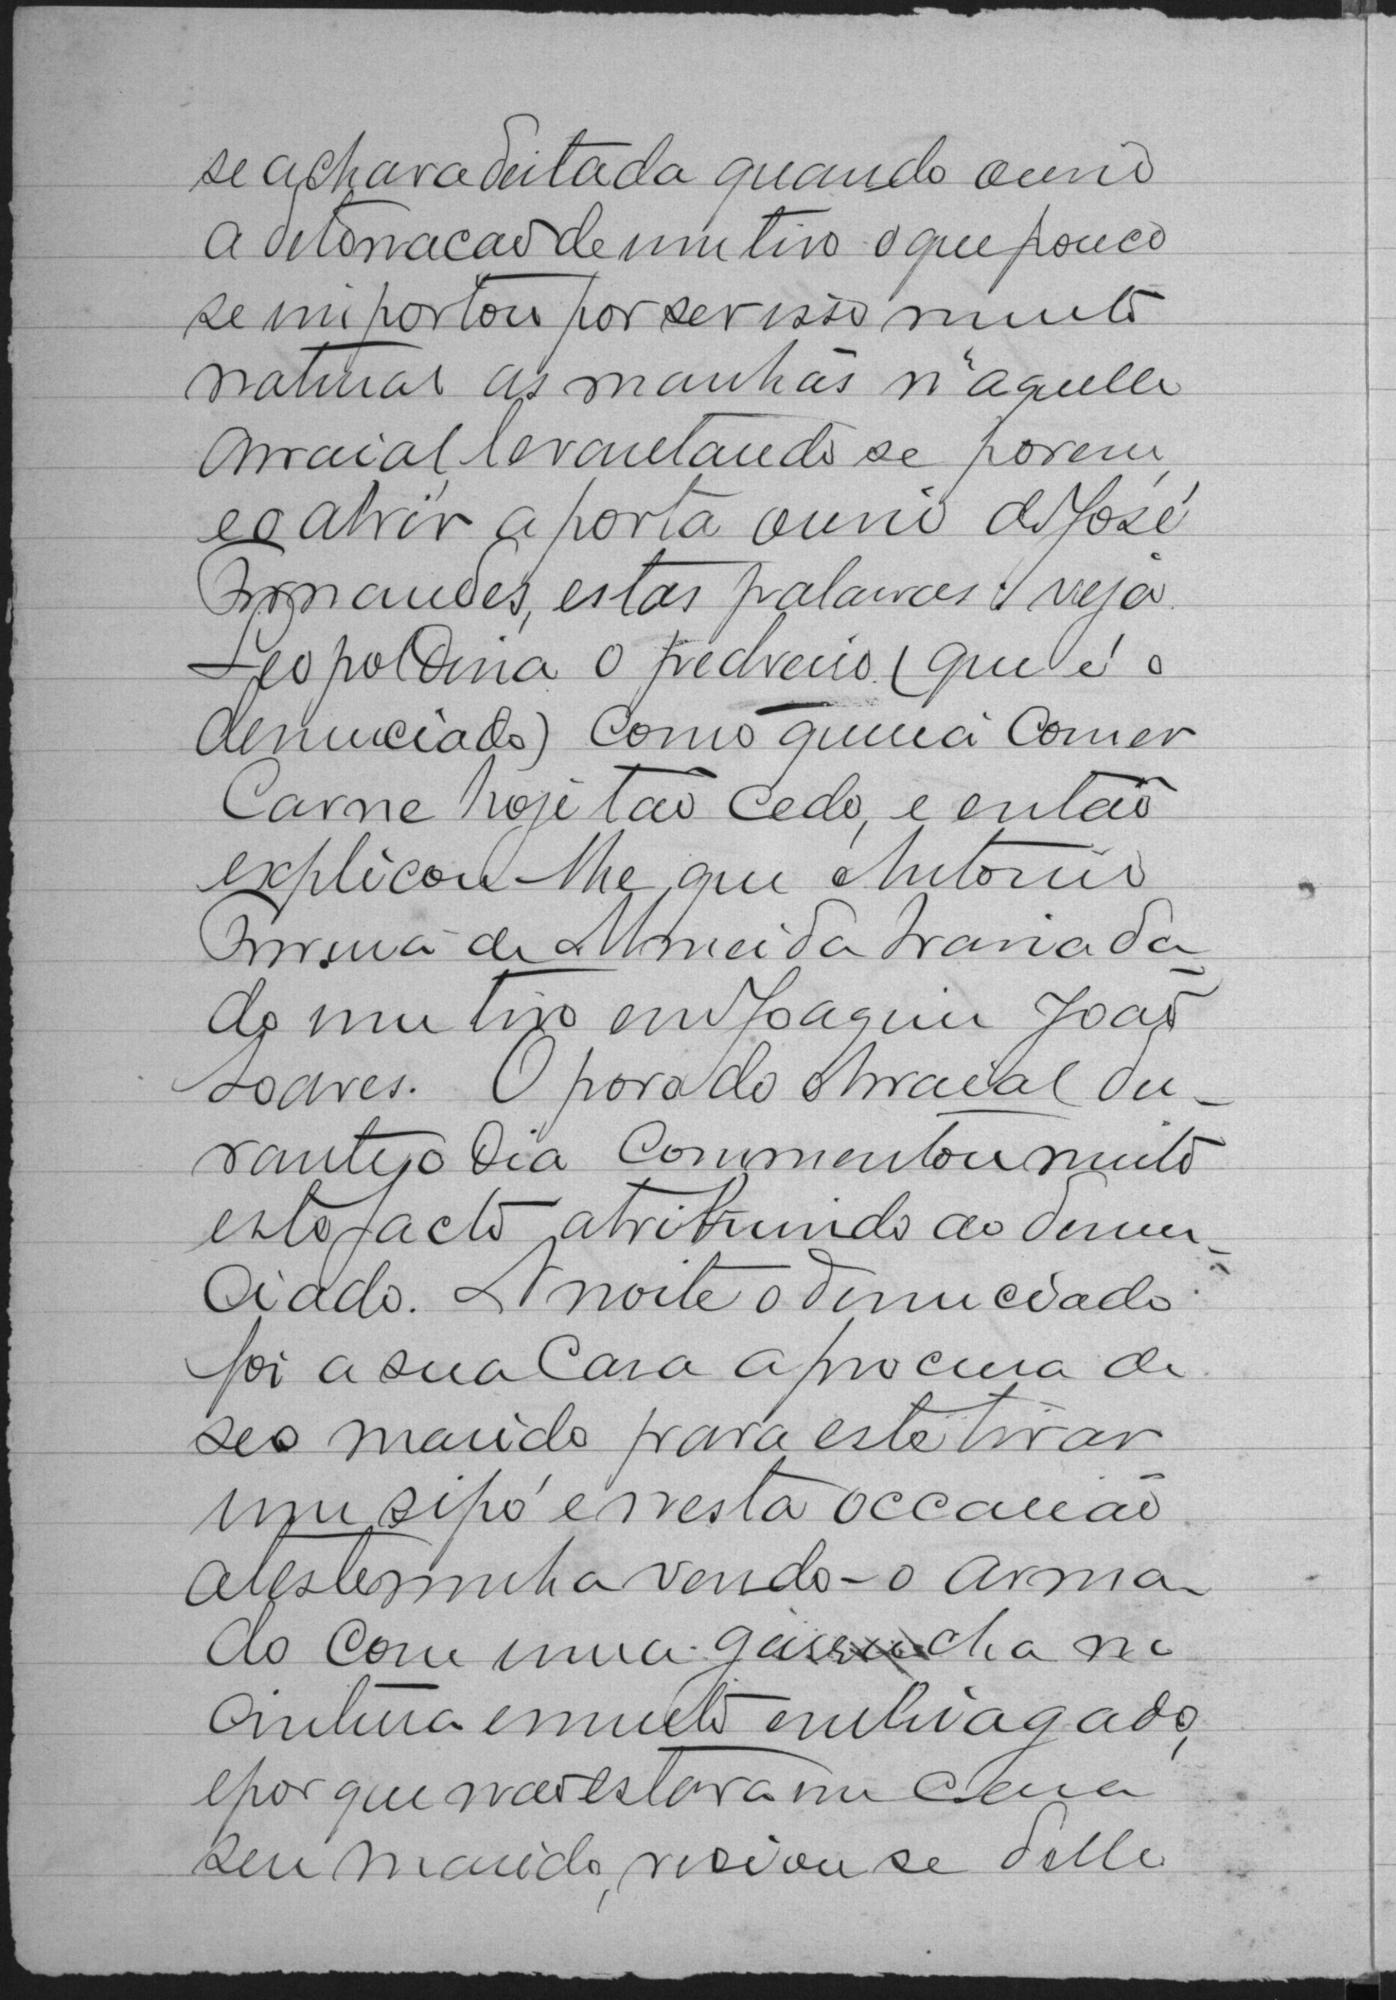 se achava deitada quando ouvio
a detonacao de um tiro o que pouco
se importou por ser isso muito
natural as manhãs n'aquelle
arraial, levantando se porem,
eo abrir a porta ouvio de José
Fernandes, estas palavras: veja
Leopoldina o pedreiro (que é o
denunciado) como queria comer
Carne hoje tão cedo, e então
explicou-lhe que Antonio
de Almeida havia da
do um tiro em Joaquim João
Soares. O povo do Arraial du-
rante o dia commentou muito
este facto atribuindo ao denun-
ciado. A noite o denunciado
foi a sua Casa a procura de
seo marido para este tirar
um sipó e nesta occasião
a testemunha vendo-o arma-
do com uma garrucha na
cintura e muito embriagado,
e por que não estava em casa
seu marido, receiou se delle